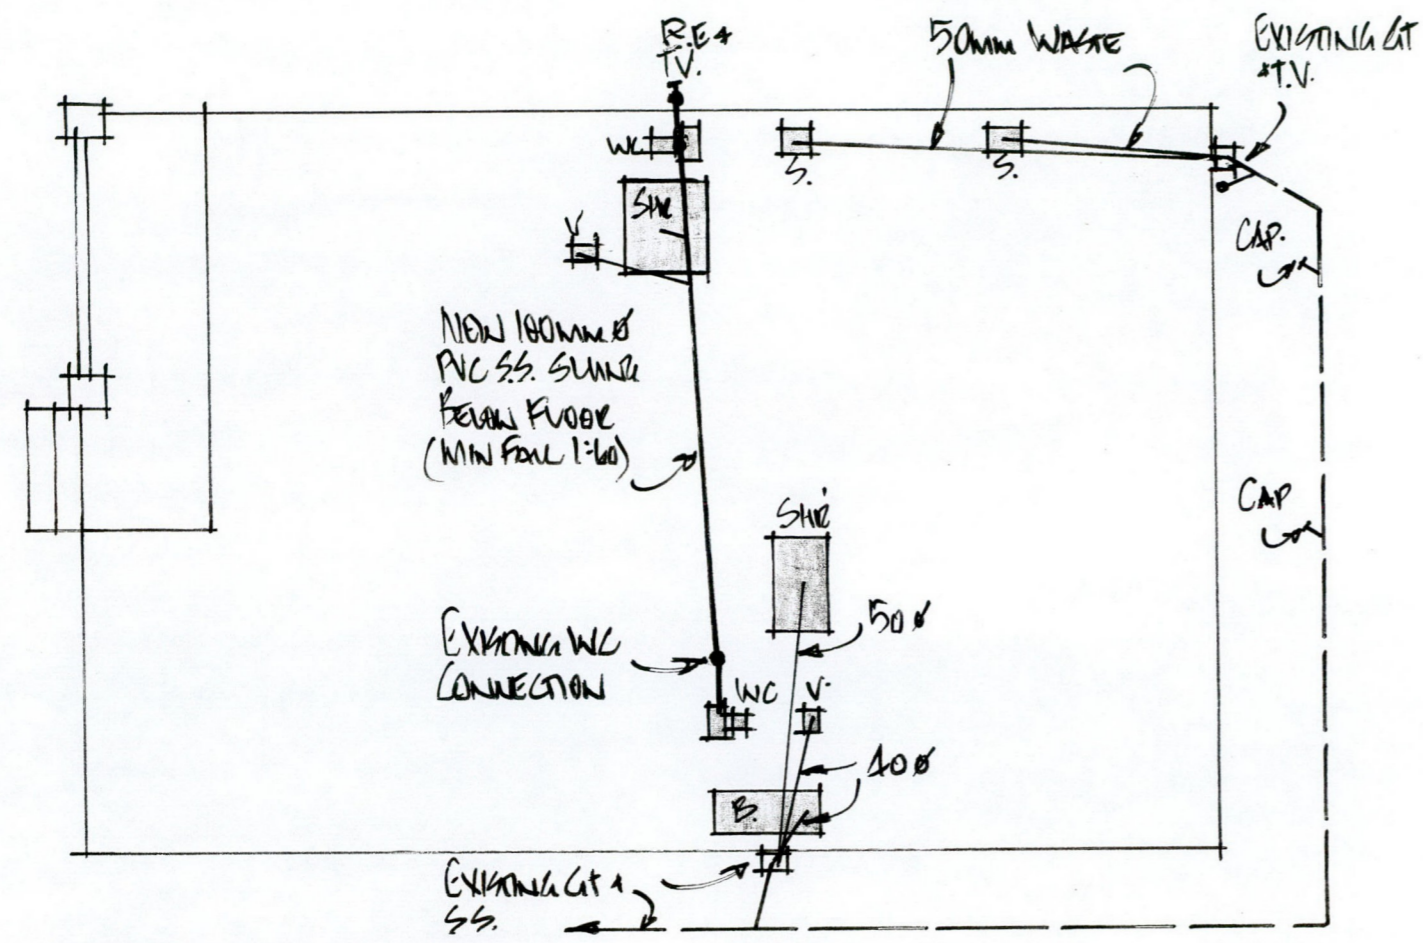 R.E +
T.V.
50mm WASTE
EXISTING GT
+T.V.
WC.
S.
S.
SHR
V
CAP.
NEW 100mm Ø
PVC S.S. SLUNG
BELOW FLOOR
(MIN FALL 1:60)
CAP
SHR
50 Ø
EXISTING WC
CONNECTION
WC
V.
40 Ø
B.
EXISTING GT +
SS.